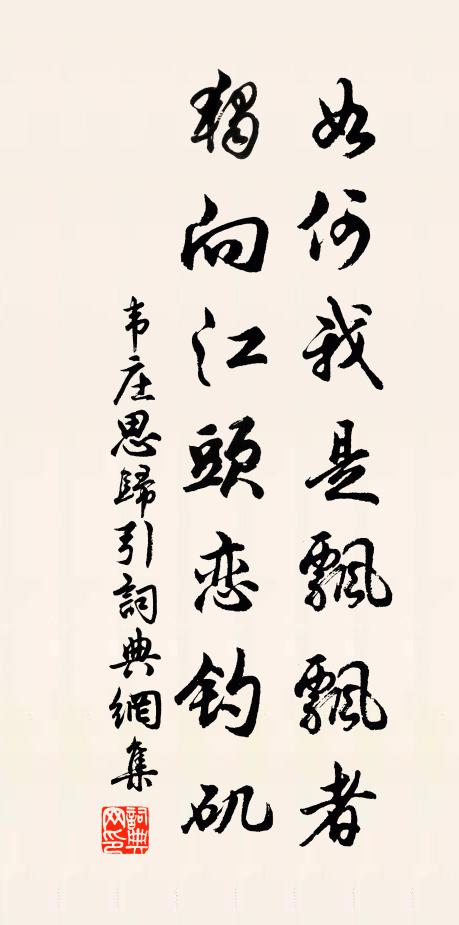 如何我是飘飘者
獨向江頭恋钓矶
韦庄思歸引詞典網集
詞典